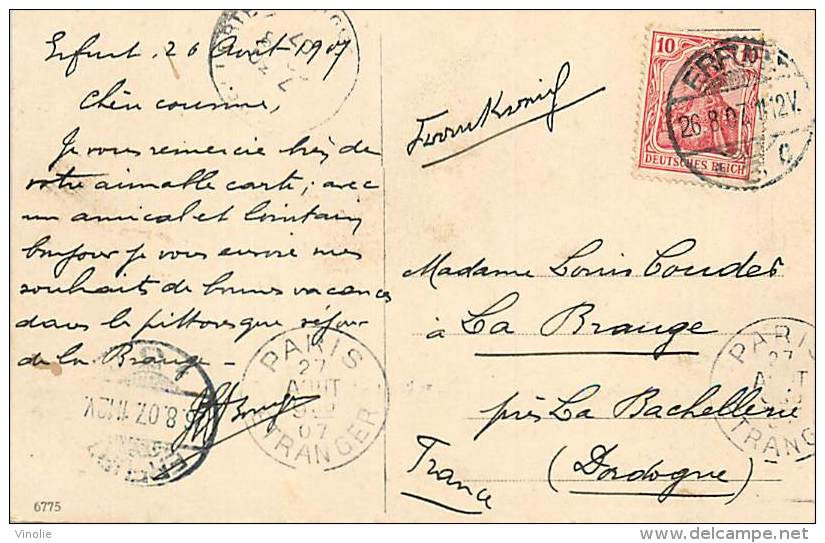 Erfurt, 26 Août 1907
Chère cousine,
Je vous remercie très de
votre aimable carte; avec
un amical et lointain
bonjour je vous envoie mes
souhaits de bonnes vacances
dans le pittoresque séjour
de la Brauge -
Frankreich
10 10
DEUTSCHES REICH
ERFURT
26.8.07. 11-12V.
C
Madame Louis Coudes
à La Brauge
près La Bachellerie
(Dordogne)
France
PARIS
27
AOUT
07
ETRANGER
PARIS
27
AOUT
ETRANGER
8.07. 11-12V.
6775
Vinolie
delcampe.net